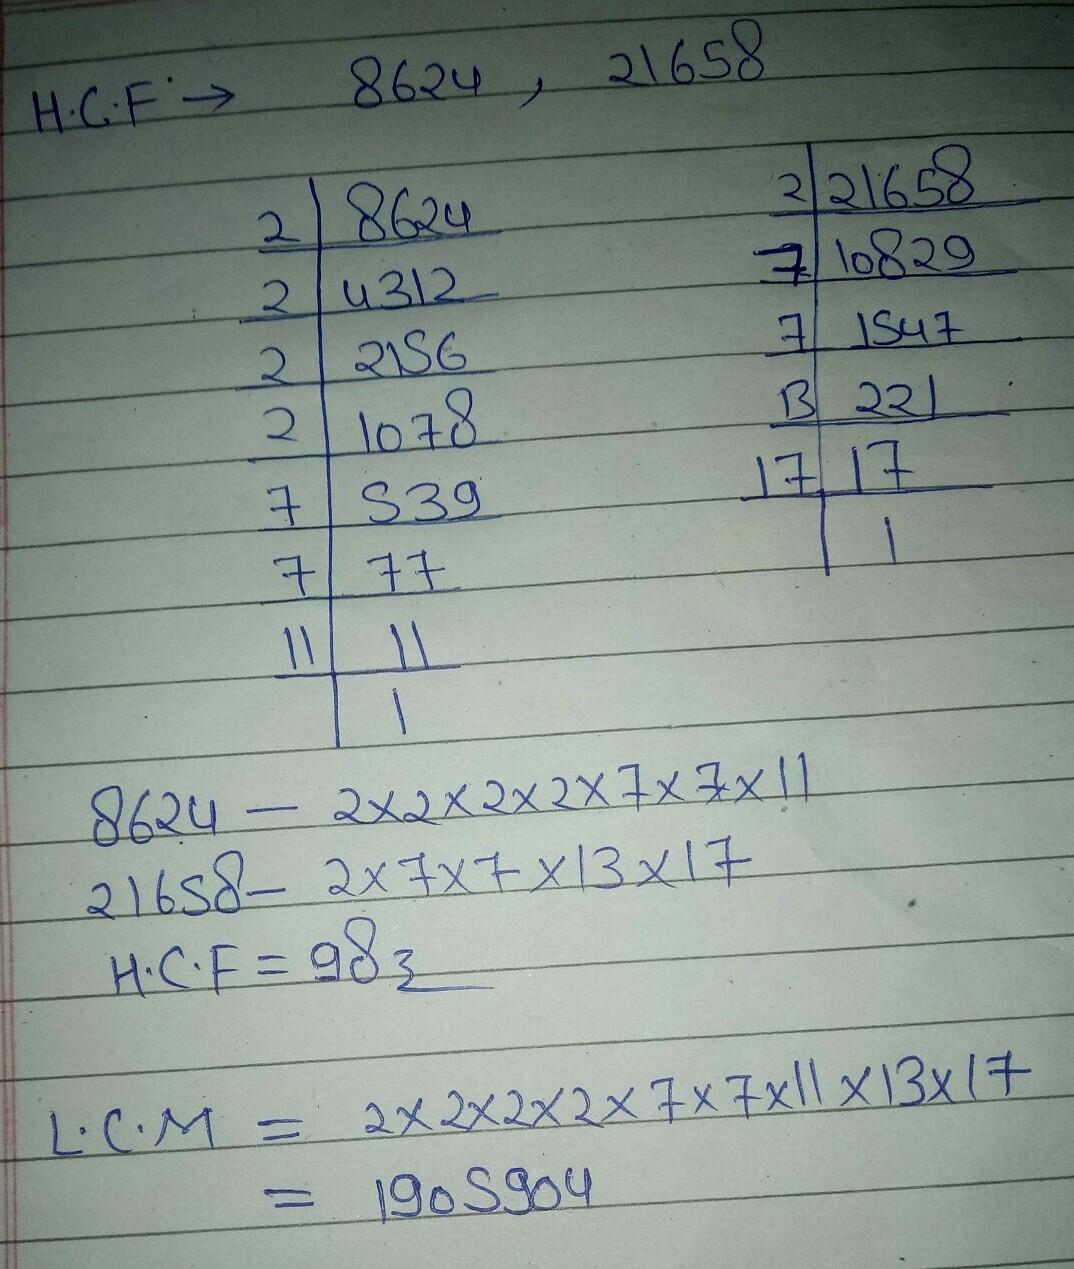 H.C.F → 8624, 21658
2 | 8624
2 | 4312
2 | 2156
2 | 1078
7 | 539
7 | 77
11 | 11
| 1
2 | 21658
7 | 10829
7 | 1547
13 | 221
17 | 17
| 1
8624 — 2×2×2×2×7×7×11
21658 – 2×7×7×13×17
H.C.F = 98
L.C.M = 2×2×2×2×7×7×11×13×17
= 1905904